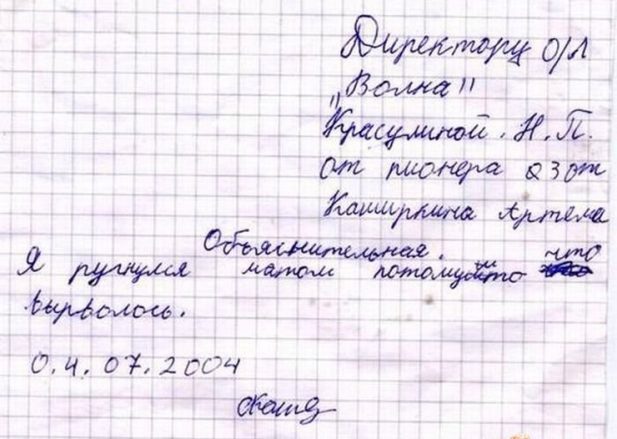 Директору О/Л
„Волна"
Красулиной. Н. П.
от пионера 23 от
Каширкина Артема
Объяснительная.
Я ругнулся матом потомушто что
вырволось.
0.4.07.2004